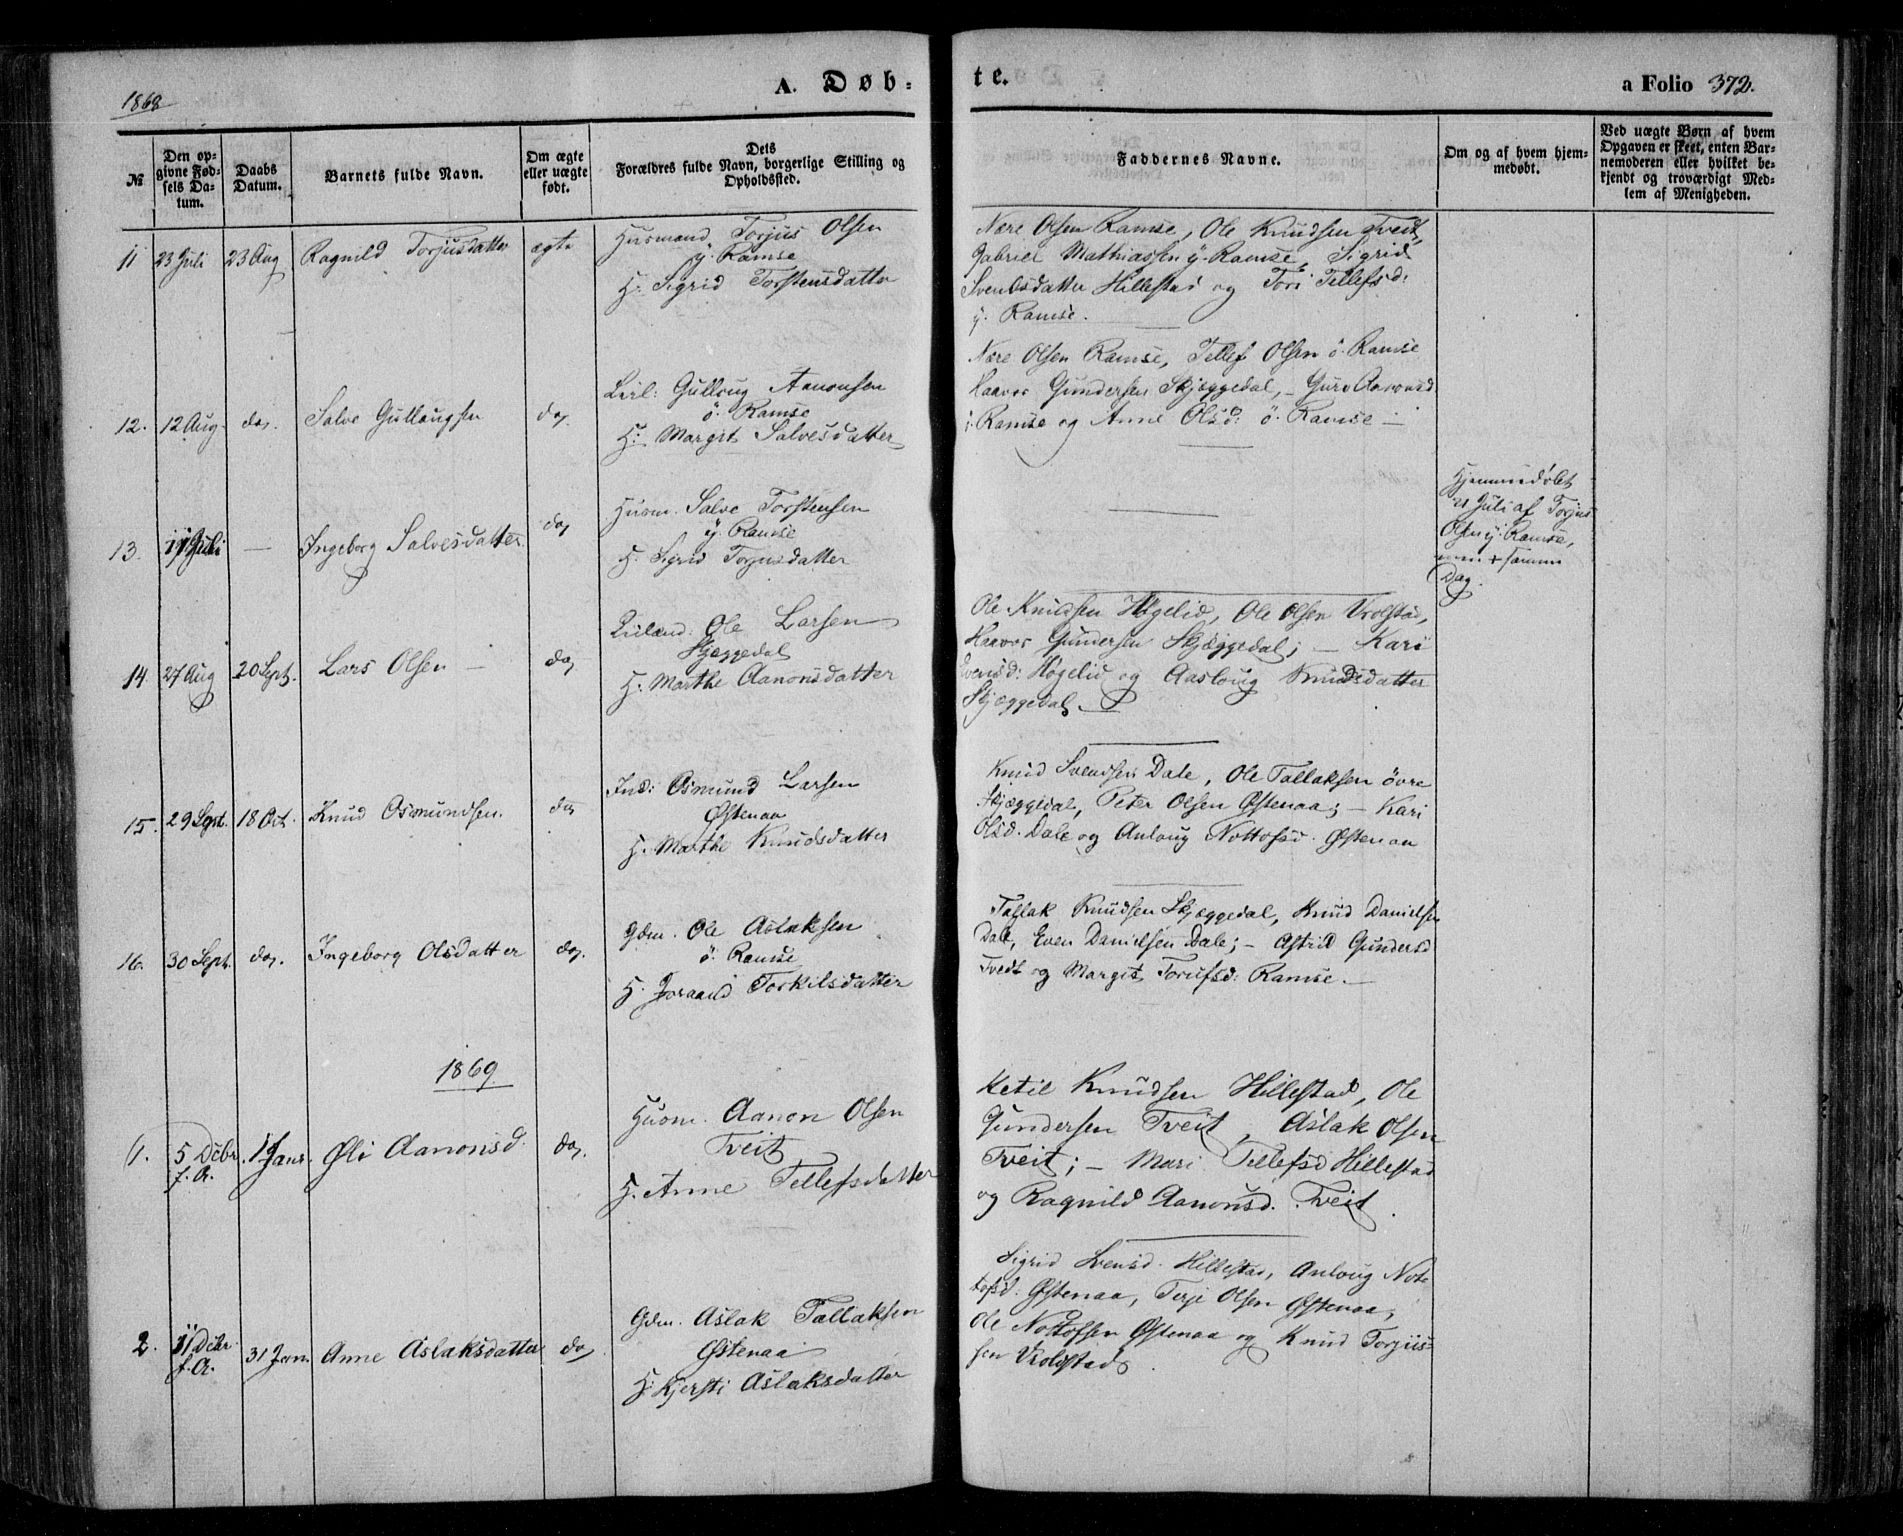 1868
A. Døb=
te.
a Folio 372.
№
Den op-
givne Fød-
sels Da-
tum.
Daabs
Datum.
Barnets fulde Navn.
Om ægte
eller uægte
født.
Dets
Forældres fulde Navn, borgerlige Stilling og
Opholdssted.
Faddernes Navne.
Om og af hvem hjem-
medøbt.
Ved uægte Børn af hvem
Opgaven er skeet, enten Bar-
nemoderen eller hvilket be-
kjendt og troværdigt Med-
lem af Menigheden.
11 23 Juli 23 Aug Ragnild Torjusdatter ægte
Husmand Torjus Olsen
y. Ramse
H. Sigrid Torstensdatter
Nere Olsen Ramse, Ole Knudsen Tveit,
Gabriel Mathiassen y. Ramse, Sigrid
Svensdatter Hillestad og Tori Tellefsd:
y. Ramse.
12. 12 Aug. do. Salve Gullaugsen do,
Leil: Gullaug Aanonsen
ö. Ramse
H: Margit Salvesdatter
Nere Olsen Ramse, Tellef Olsen ö. Ramse
Haavor Gundersen Skjeggedal, – Guro Aanonsd
Ramse og Anne Olsd: ö. Ramse –
13. 17 Juli — Ingeborg Salvesdatter do,
Husm. Salve Torstensen
y. Ramse
H. Sigrid Torjusdatter
Hjemmedøbt
21 Juli af Torjus
Olsen y. Ramse,
men + samme
Dag.
14 27 Aug 20 Sept. Lars Olsen – do,
Ole Larsen
Skjeggedal
H. Marthe Aanonsdatter
Ole Knudsen Høgelid, Ole Olsen Vrolstad,
Haavor Gundersen Skjeggedal; – Kari
Svensd: Høgelid og Aasloug Knudsdatter
Skjeggedal.
15. 29 Sept. 18 Oct. Knud Osmundsen. do,
Ind: Osmund Larsen
Østenaa
H. Marthe Knudsdatter
Knud Svendsen Dale, Ole Tallaksen övre
Skjeggedal, Peter Olsen Østenaa; – Kari
Olsd. Dale og Anloug Nottofsd. Østenaa
16. 30 Sept. do. Ingeborg Olsdatter do.
Gdm. Ole Aslaksen
ö. Ramse
H. Joraand Torkilsdatter
Tallak Knudsen Skjeggedal, Knud Danielsen
Dale, Even Danielsen Dale; – Astrid Gundersd
Tvedt og Margit Torufsd: Ramse. –
1869
1. 5 Decbr
f. A. 1 Janr. Øli Aanonsd. do,
Husm. Aanon Olsen
Tveit
H. Anne Tellefsdatter
Ketil Knudsen Hillestad, Ole
Gundersen Tveit, Aslak Olsen
Tveit; – Mari Tellefsd Hillestad
og Ragnild Aanonsd. Tveit.
2. 11 Decbr
f. A. 31 Jan. Anne Aslaksdatter do,
Gdm. Aslak Tallaksen
Østenaa
H: Kjersti Aslaksdatter
Sigrid Svensd. Hillestad, Anloug Not-
tofsd. Østenaa, Terje Olsen Østenaa,
Ole Nottofsen Østenaa og Knud Torjus-
sen Vrolstad.